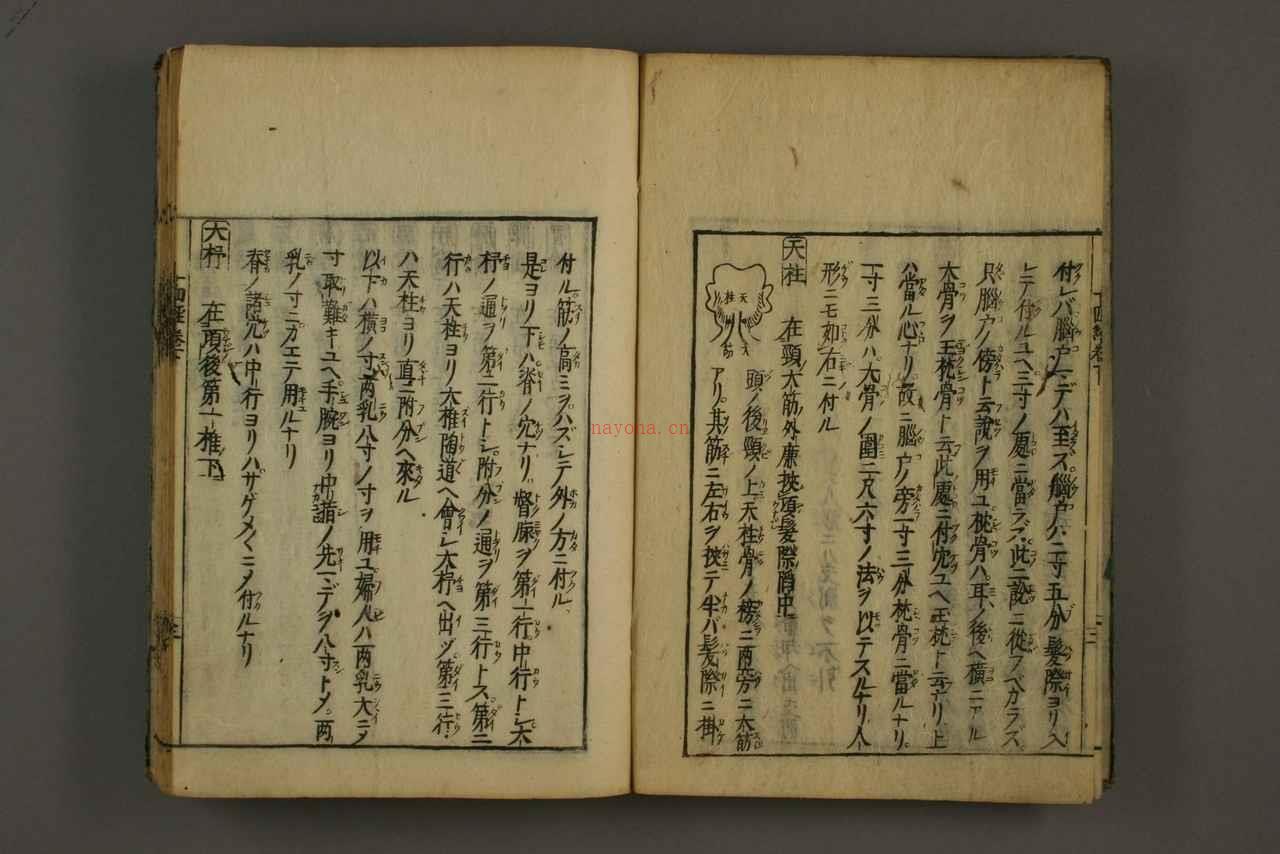 付レバ腦戸マデハ至ズ腦戸ハ二寸五分髮際ヨリ入
シテ付ルユヘ三寸ノ處ニ當ラズ此二説ニ從フベカラズ
只腦戸ノ傍ト云説ヲ用ユ枕骨ハ耳ノ後ヘ橫ニアル
大骨ヲ玉枕骨ト云此處ニ付ユヘ玉枕ト云ナリ上
ハ當ル心ナリ故ニ腦戸ノ旁一寸三分枕骨ニ當ルナリ
一寸三分ハ大骨ノ圍二尺六寸ノ法ヲ以テスルナリ人
形ニモ如右ニ付ル
天柱 在頸大筋外廉挾項髮際陷中
天柱
頭ノ後頸ノ上天柱骨ノ榜ニ兩旁ニ大筋
アリ其筋ニ左右ヲ挾テ半バ髮際ニ掛
付ル筋ノ高ミヲハズシテ外ノ方ニ付ル
是ヨリ下ハ脊ノ穴ナリ督脉ヲ第一行中行トシ大
杼ノ通ヲ第二行トシ附分ノ通ヲ第三行トス第二
行ハ天柱ヨリ大椎陶道ヘ會シ大杼ヘ出ヅ第三行
ハ天柱ヨリ直ニ附分ヘ來ル
以下ハ橫ノ寸兩乳八寸ノ寸ヲ用ユ婦人ハ兩乳大ニシテ
寸取難キユヘ手腕ヨリ中指ノ先マデヲ八寸トメ兩
乳ノ寸ニカエテ用ルナリ
脊ノ諸穴ハ中行ヨリハサゲメくニメ付ルナリ
大杼 在項後第一椎下
十四經卷下